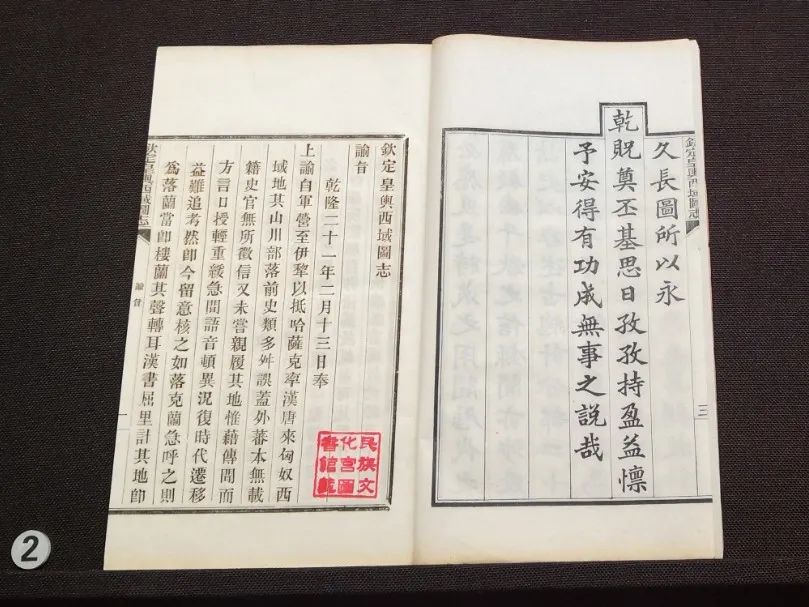 欽定皇輿西域圖志
三
久長圖所以永
乾貺奠丕基思日孜孜持盈益懍
予安得有功成無事之説哉
欽定皇輿西域圖志
諭旨
乾隆二十一年二月十三日奉
上諭自軍營至伊犂以抵哈薩克率漢唐來匈奴西
域地其山川部落前史類多舛誤葢外蕃本無載
籍史官無所徵信又未嘗親履其地惟藉傳聞而
方言口授輕重緩急間語音頓異況復時代遷移
益難追考然即今留意核之如落克蘭急呼之則
爲落蘭當即樓蘭其聲轉耳漢書屈里計其地即
欽定皇輿西域圖志
諭旨
一
民族文
化宮圖
書館藏
2